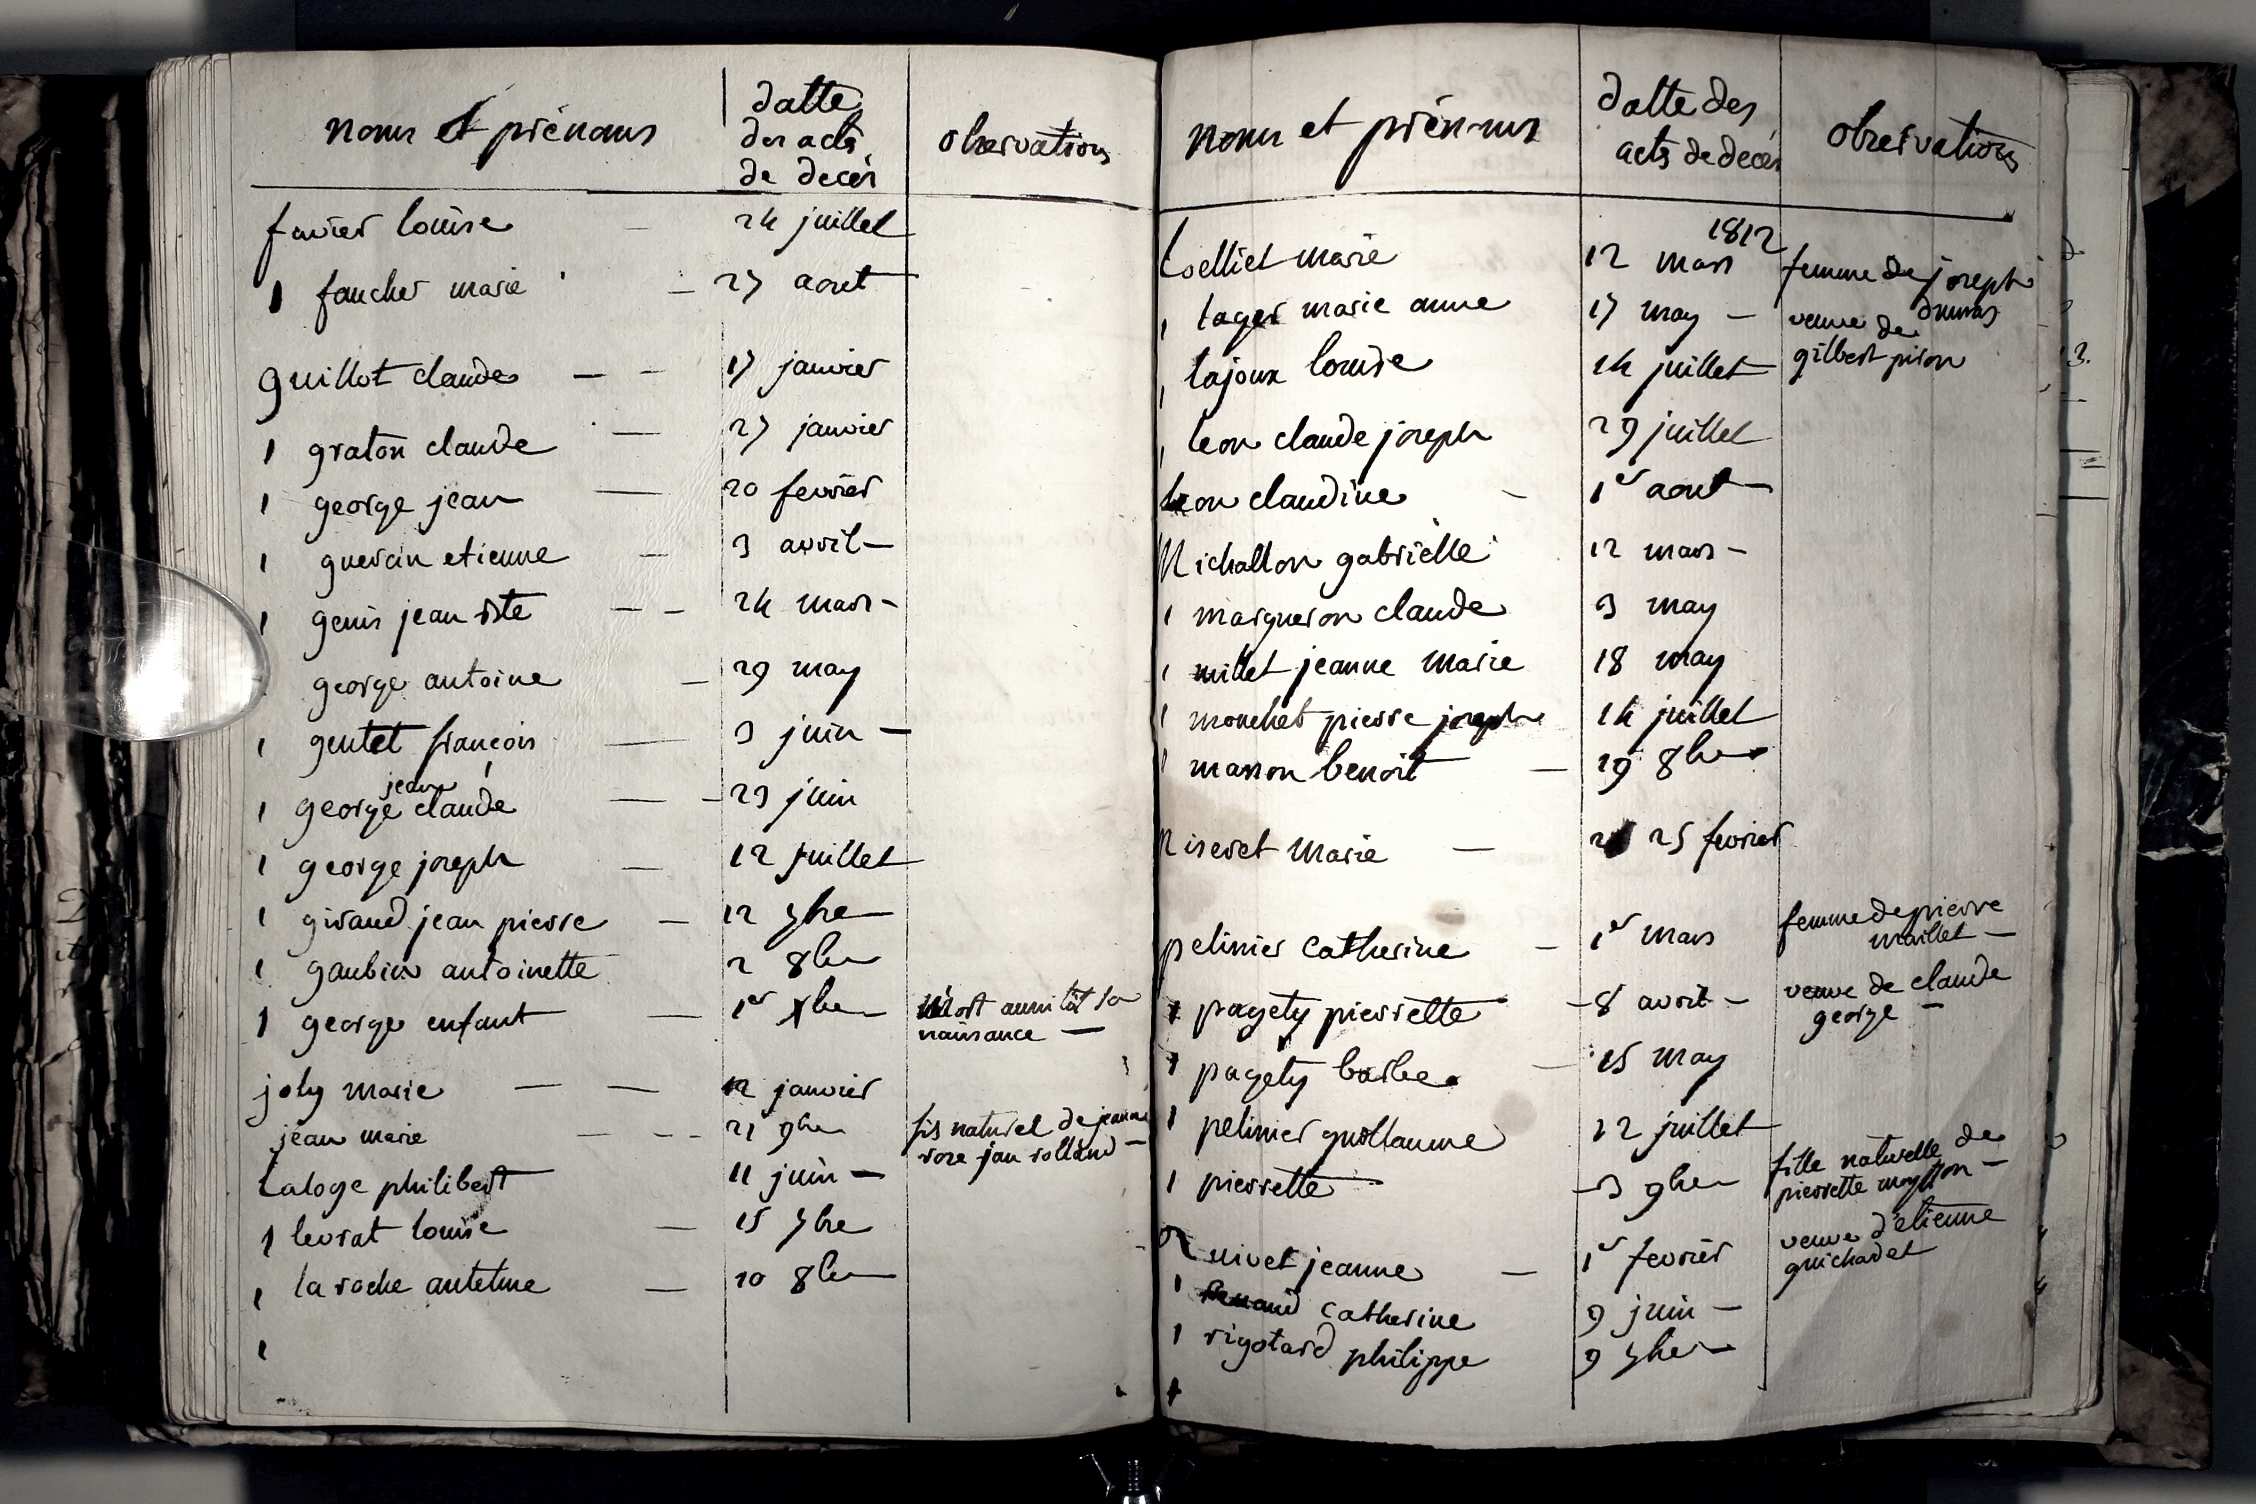 noms et prénoms datte des acts de decés observations
favier louise — 24 juillet
1 faucher marie — 27 aout
guillot claude — — 17 janvier
1 graton claude — 27 janvier
1 george jean — 20 fevrier
1 guerin etienne — 3 avril —
1 genis jean bte — — 24 mars —
george antoine — 29 may
1 gentet françois — 3 juin —
jean
1 george claude — — 23 juin
1 george joseph — 12 juillet
1 giraud jean pierre — 12 7bre
1 gaubin antoinette 2 8bre
1 george enfant — 1er xbre Mort aussitôt sa
naissance —
joly marie — — 12 janvier
jean marie — — - 21 9bre fis naturel de jeanne
rose jan rolland —
Laloge philibert 11 juin —
1 levrat louise — 15 7bre
1 la roche antelme — 10 8bre
1
noms et prénoms datte des acts de decés observations
1812
Loelliet marie 12 mars femme de joseph
dumas
1 lager marie anne 17 may — veuve de
gilbert pison
1 lajoux louise 14 juillet
1 leon claude joseph 29 juillet
leon claudine — 1er aout
Michallon gabrielle 12 mars —
1 margueron claude 3 may
1 millet jeanne marie 18 may
1 monchet pierre joseph 14 juillet
1 masson benoit — 19 8bre
niseret marie — 25 fevrier
pelinier catherine — 1er mars femme de pierre
maillet —
1 pagety pierrette — 8 avril — veuve de claude
george —
1 pagety barbe — 15 may
1 pelinier guillaume 12 juillet
1 pierrette — 3 9bre fille naturelle de
pierrette
nivet jeanne — 1er fevrier veuve d'etienne
guichardet
1 catherine 9 juin —
1 rigotard philippe 9 7bre
1